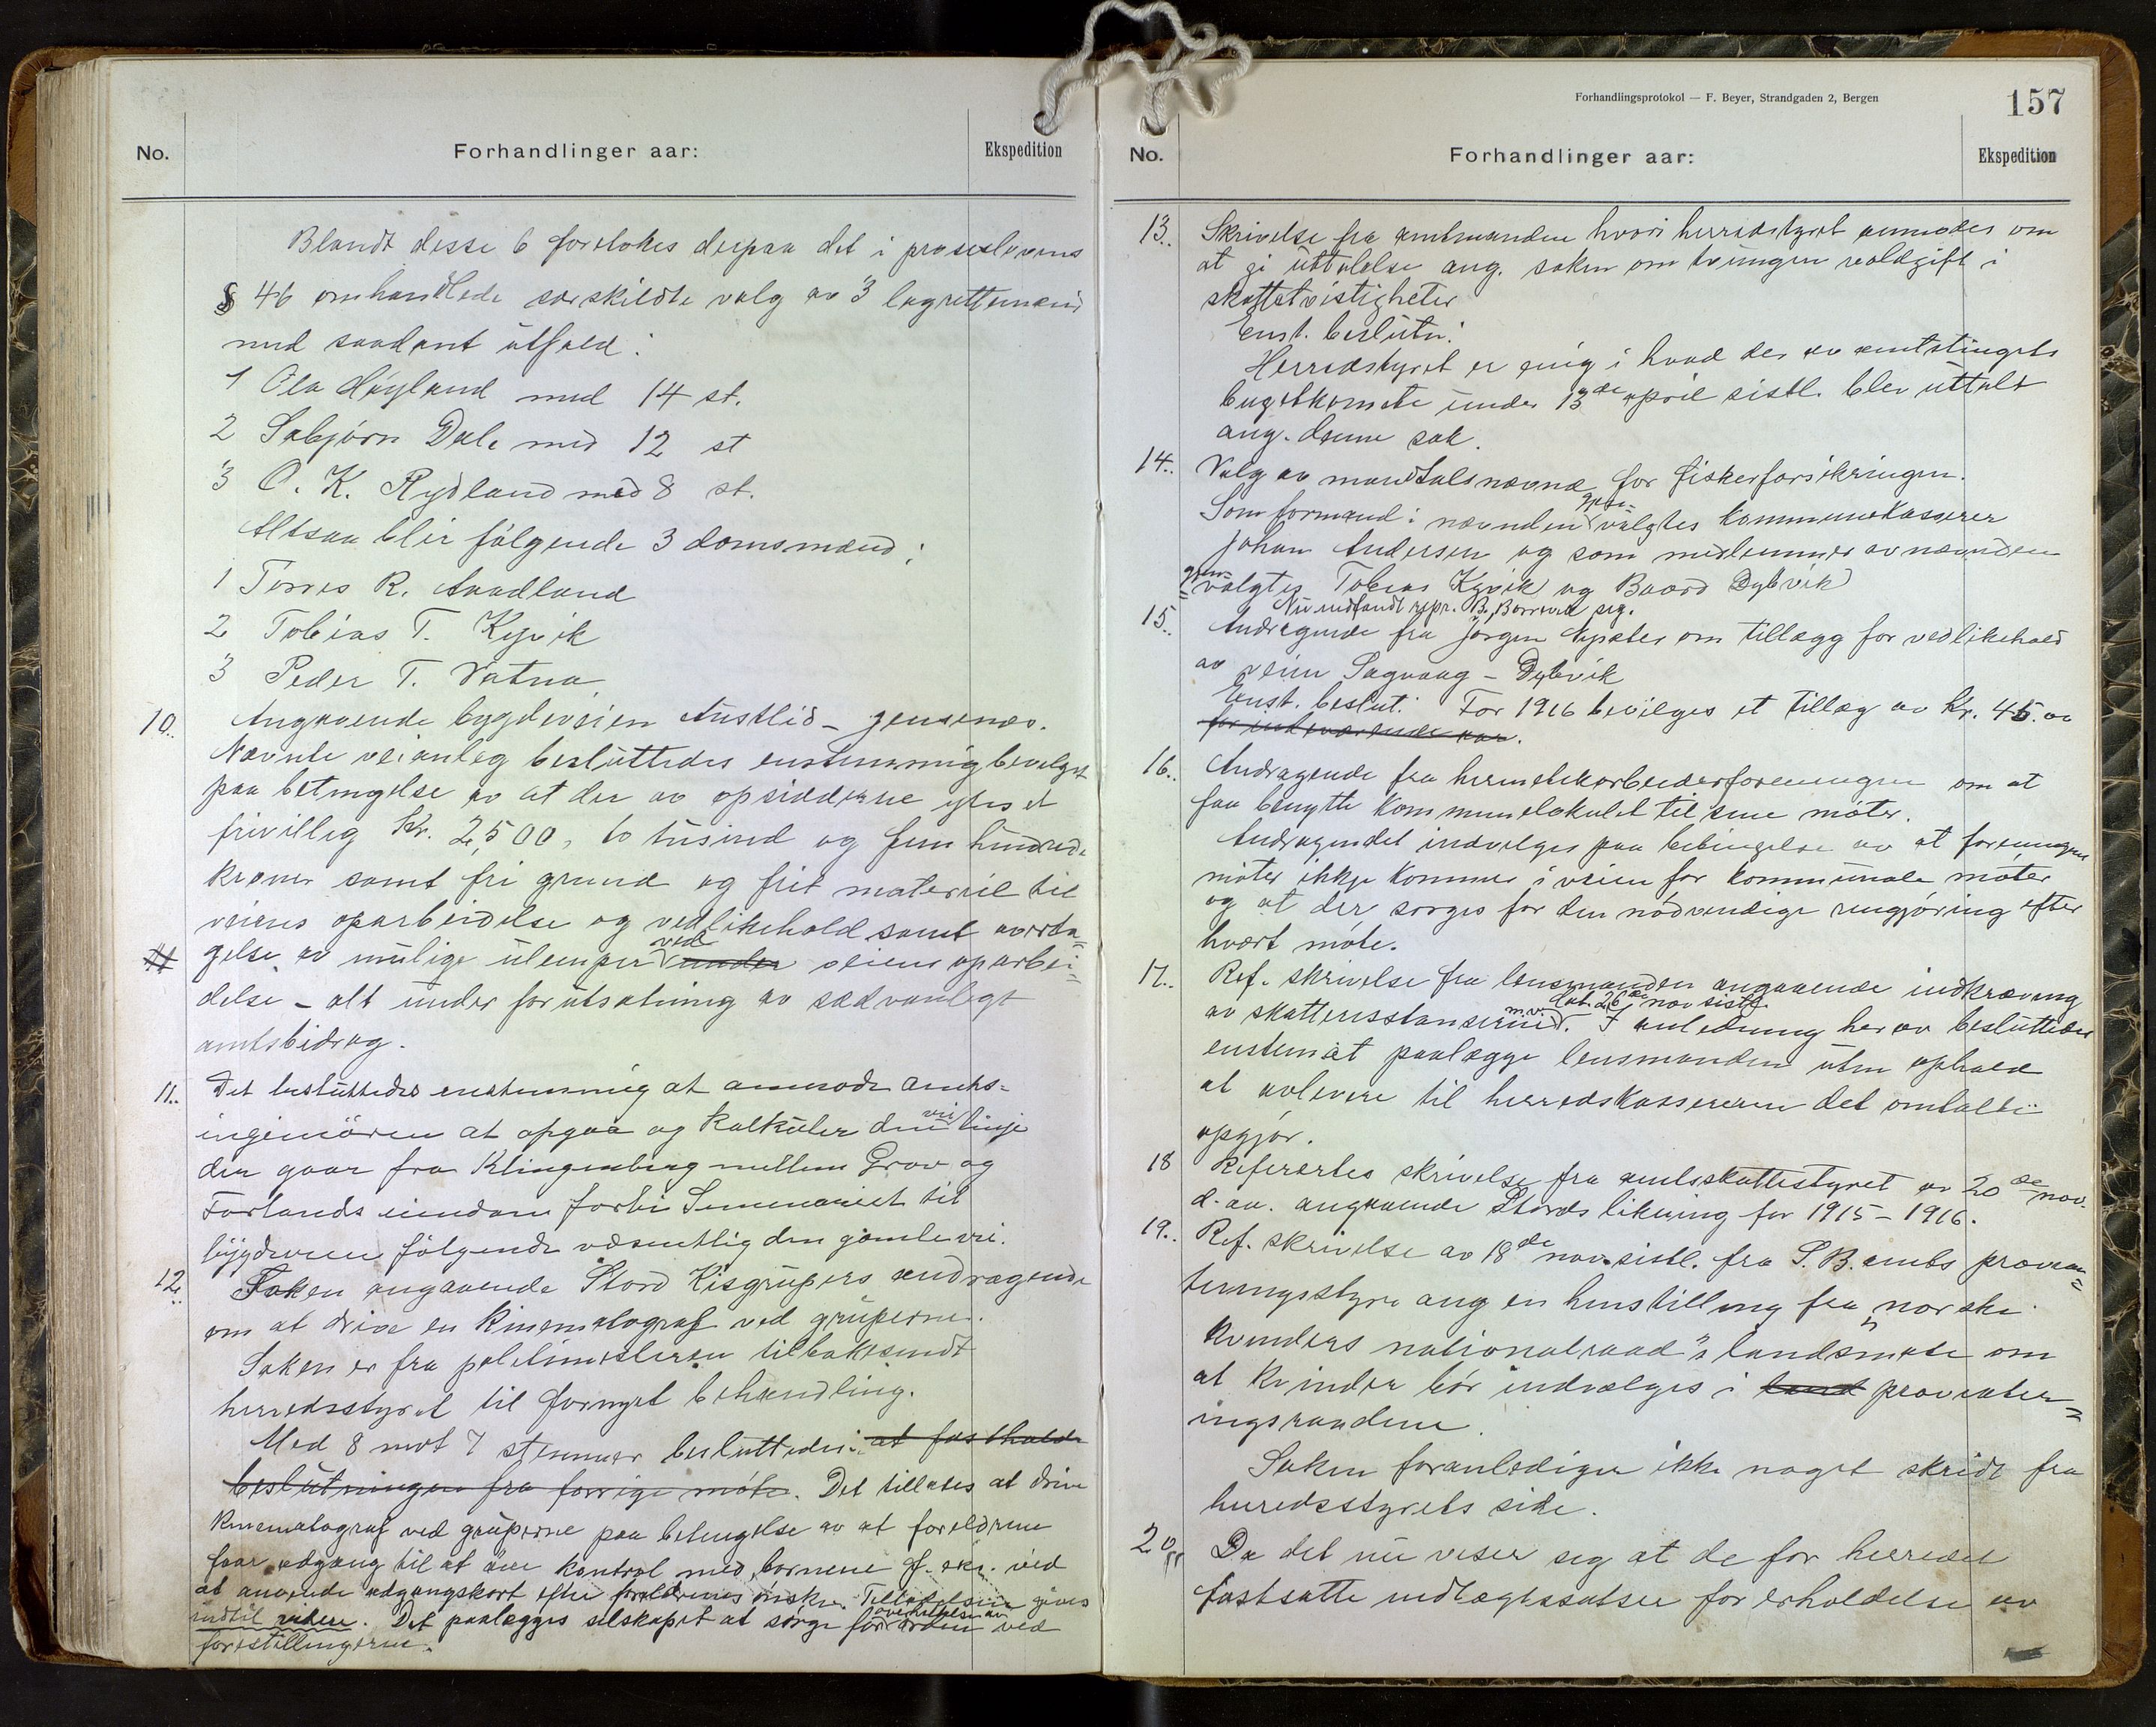 No.
Forhandlinger aar:
Ekspedition
Blandt desse 6 foretokes derpaa det i proseslovens
§ 46 omhandlede særskildte valg av 3 lagrettemænd
med saadant utfald:
1 Ola Høyland med 14 st.
2 Sæbjørn Dale med 12 st
3 O. K. Rydland med 8 st.
Altsaa blir følgende 3 domsmænd:
1 Torres R. Aadland
2 Tobias T. Kyvik
3 Peder T. Vatna
10.. Angaaende bygdeveien Austlid - Jensenæs.
Nævnte veianlæg besluttedes enstemmig bevilget
paa betingelse av at der av opsidderne ydes et
frivillig Kr. 2,500, to tusind og fem hundrede
kroner samt fri grund og frit materiel til
veiens oparbeidelse og vedlikehold samt avverta=
gelse av mulige ulemper ved under veiens oparbei=
delse - alt under forutsætning av sædvanlegt
amtsbidrag.
11.. Det besluttedes enstemmig at anmode amts=
ingeniøren at opgaa og kalkuler den vei linje
der gaar fra Klingenberg mellem Grov og
Førlands eiendom forbi Seminariet til
bygdeveien følgende væsentlig den gamle vei.
12.. Saken angaaende Stord Kisgrubers andragende
om at drive en kinematograf ved gruberne.
Saken er fra politimesteren tilbakesendt
herredsstyret til fornyet behandling.
Med 8 mot 7 stemmer besluttedes: at fastholde
beslutningen fra forrige møte. Det tillates at drive
Kinematograf ved gruberne paa betingelse av at foreldrene
faar adgang til at øve kontrol med barnene f. eks. ved
at anvende adgangskort efter foreldrenes ønsker. Tilladelsen gives
indtil videre. Det paalægges selskapet at sørge for overholdelse av orden ved
forestillingerne.
Forhandlingsprotokol — F. Beyer, Strandgaden 2, Bergen
157
No.
Forhandlinger aar:
Ekspedition
13.. Skrivelse fra amtmanden hvori herredstyret anmodes om
at gi uttalelse ang. saken om tvungen voldgift i
skattetvistigheter
Enst. beslutn:
Herredstyret er enig i hvad der av amtstingets
bugetkomite under 13de april sistl. blev uttalt
ang. denne sak.
14.. Valg av mandtalsnævnd for fiskerforsikringen.
Som formand i nævnden gjen= valgtes kommunekasserer
Johan Andersen og som medlemmer av nævnden
gjen= valgtes Tobias Kyvik og Baard Dybvik
Nu indfandt repr. B. Børrevik seg.
15.. Andragende fra Jørgen Nysæter om tillægg for vedlikehold
av veien Sagvaag - Dybvik
Enst. beslut: For 1916 bevilges et tillæg av Kr. 45.00
for indeværende aar.
16.. Andragende fra hermetikarbeiderforeningen om at
faa benytte kommunelokalet til sine møter.
Andragendet indvilges paa betingelse av at foreningens
møter ikkje kommer i veien for kommunale møter
og at der sørges for den nødvendige rengjøring efter
hvært møte.
17.. Ref. skrivelse fra lensmanden angaaende indkræving
av skatterestanserne m.v. dat. 26de nov sistl. I anledning her av besluttedes
enstem at paalægge lensmanden uten ophold
at avlevere til herredskassereren det omtalte
opgjør.
18 Referertes skrivelse fra amtsskattestyret av 20de nov.
d. aa. angaaende Stords likning for 1915-1916.
19.. Ref. skrivelse av 18de nov. sistl. fra S. B. amts provian=
teringsstyre ang en henstilling fra „norske
kvinders nationalraad"s landsmøte om
at kvinder bør indvælges i land provianter=
ingsraadene.
Saken foranlediger ikke noget skridt fra
herredsstyrets side.
20.. Da det nu viser seg at de for herredet
fastsatte indtægtssatser for erholdelse av